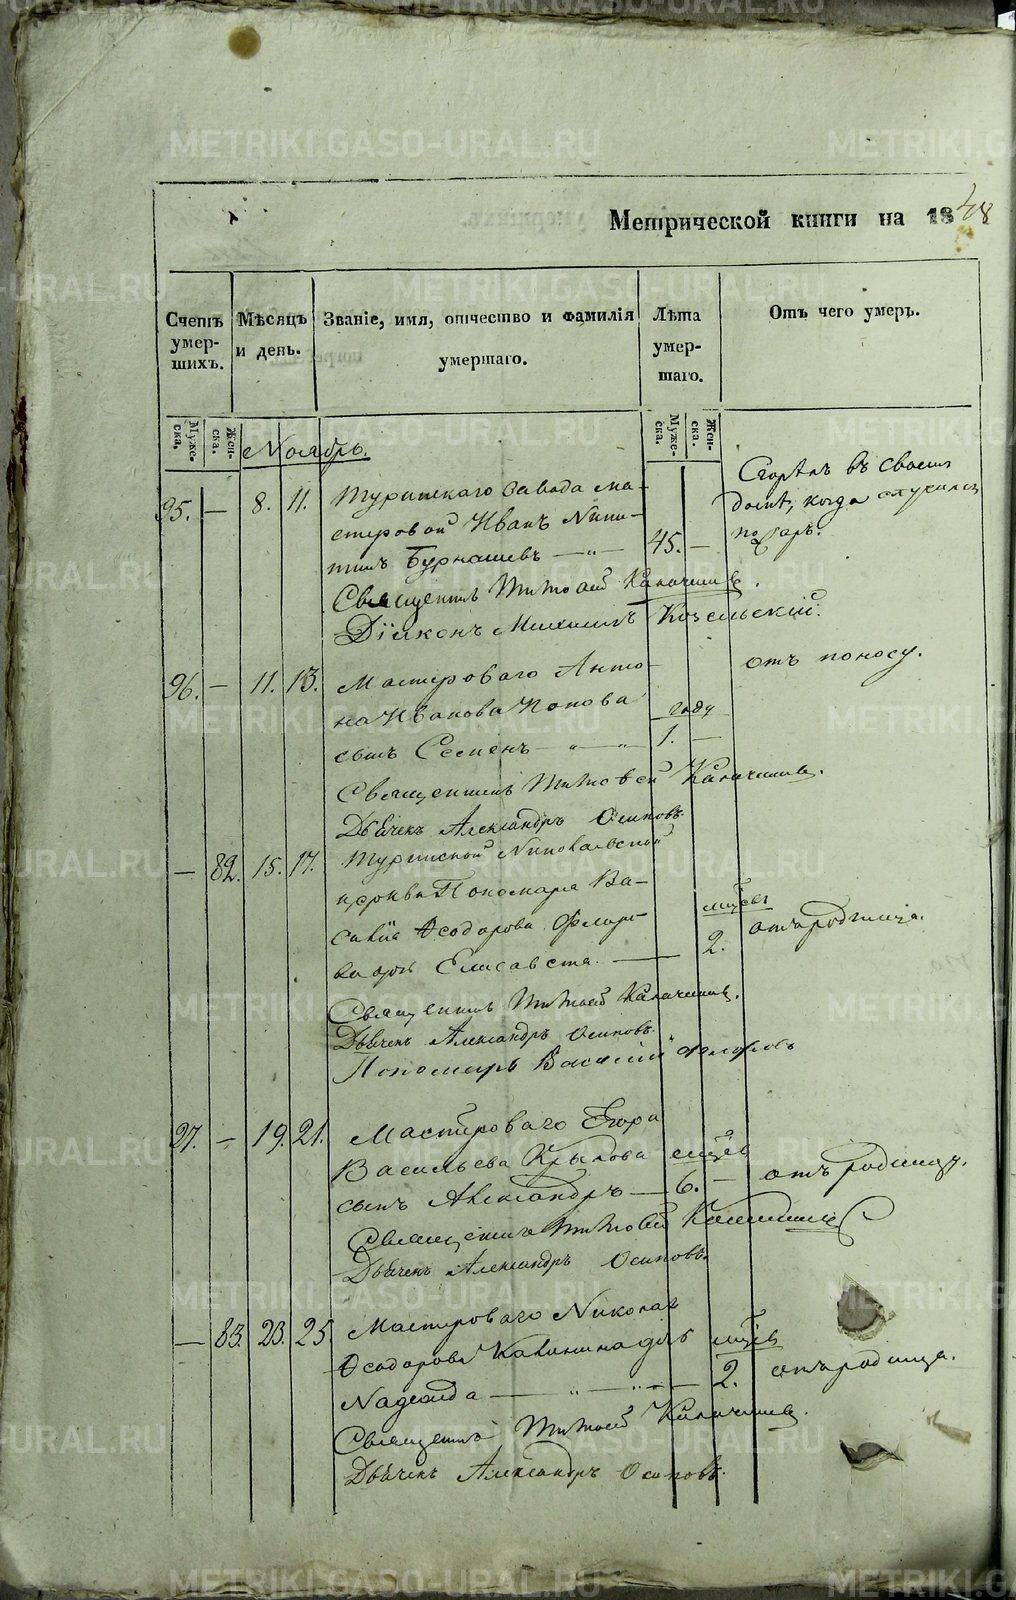 METRIKI.GASO-URAL.RU
Метрической книги на 1848
Счетъ умер-шихъ.
Мѣсяцъ и день.
Званіе, имя, отчество и фамилія умершаго.
Лѣта умер-шаго.
Отъ чего умеръ.
Муже-ска.
Жен-ска.
Муже-ска.
Жен-ска.
Ноябрь.
95. — 8. 11. Туринскаго завода ма-
стеровой Иванъ Ники-
тинъ Бурнашевъ — „ — 45. —
Сгорѣлъ въ своемъ
домѣ, когда случился
пожаръ.
Священникъ Тимофей
Діаконъ Михаилъ Козельскій.
96. — 11. 13. Мастероваго Анто-
на Иванова Попова году
сынъ Семенъ — „ — „ 1. —
отъ поносу.
Священникъ Тимофей
Дьячекъ Александръ Осиповъ.
— 82. 15. 17. Туринской Николаевской
церкви Пономаря Ва-
силія Ѳеодорова Флоро-
ва дочь Елисавета. — 2.
отъ родимца.
Священникъ Тимофей
Дьячекъ Александръ Осиповъ.
Пономарь Василій Флоровъ
97. — 19. 21. Мастероваго Егора
Васильева Крылова мѣсяцев
сынъ Александръ — 6. —
отъ родимца.
Священникъ Тимофей
Дьячекъ Александръ Осиповъ.
— 83. 23. 25 Мастероваго Николая
Ѳеодорова Калинина дочь
Надежда — „ — „ — 2.
отъ родимца.
Священникъ Тимофей
Дьячекъ Александръ Осиповъ.